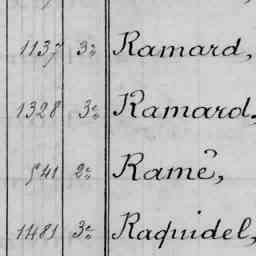 1137 3e Ramard,
1328 3e Ramard.
541 2e Ramê,
1481 3e Raquidel,